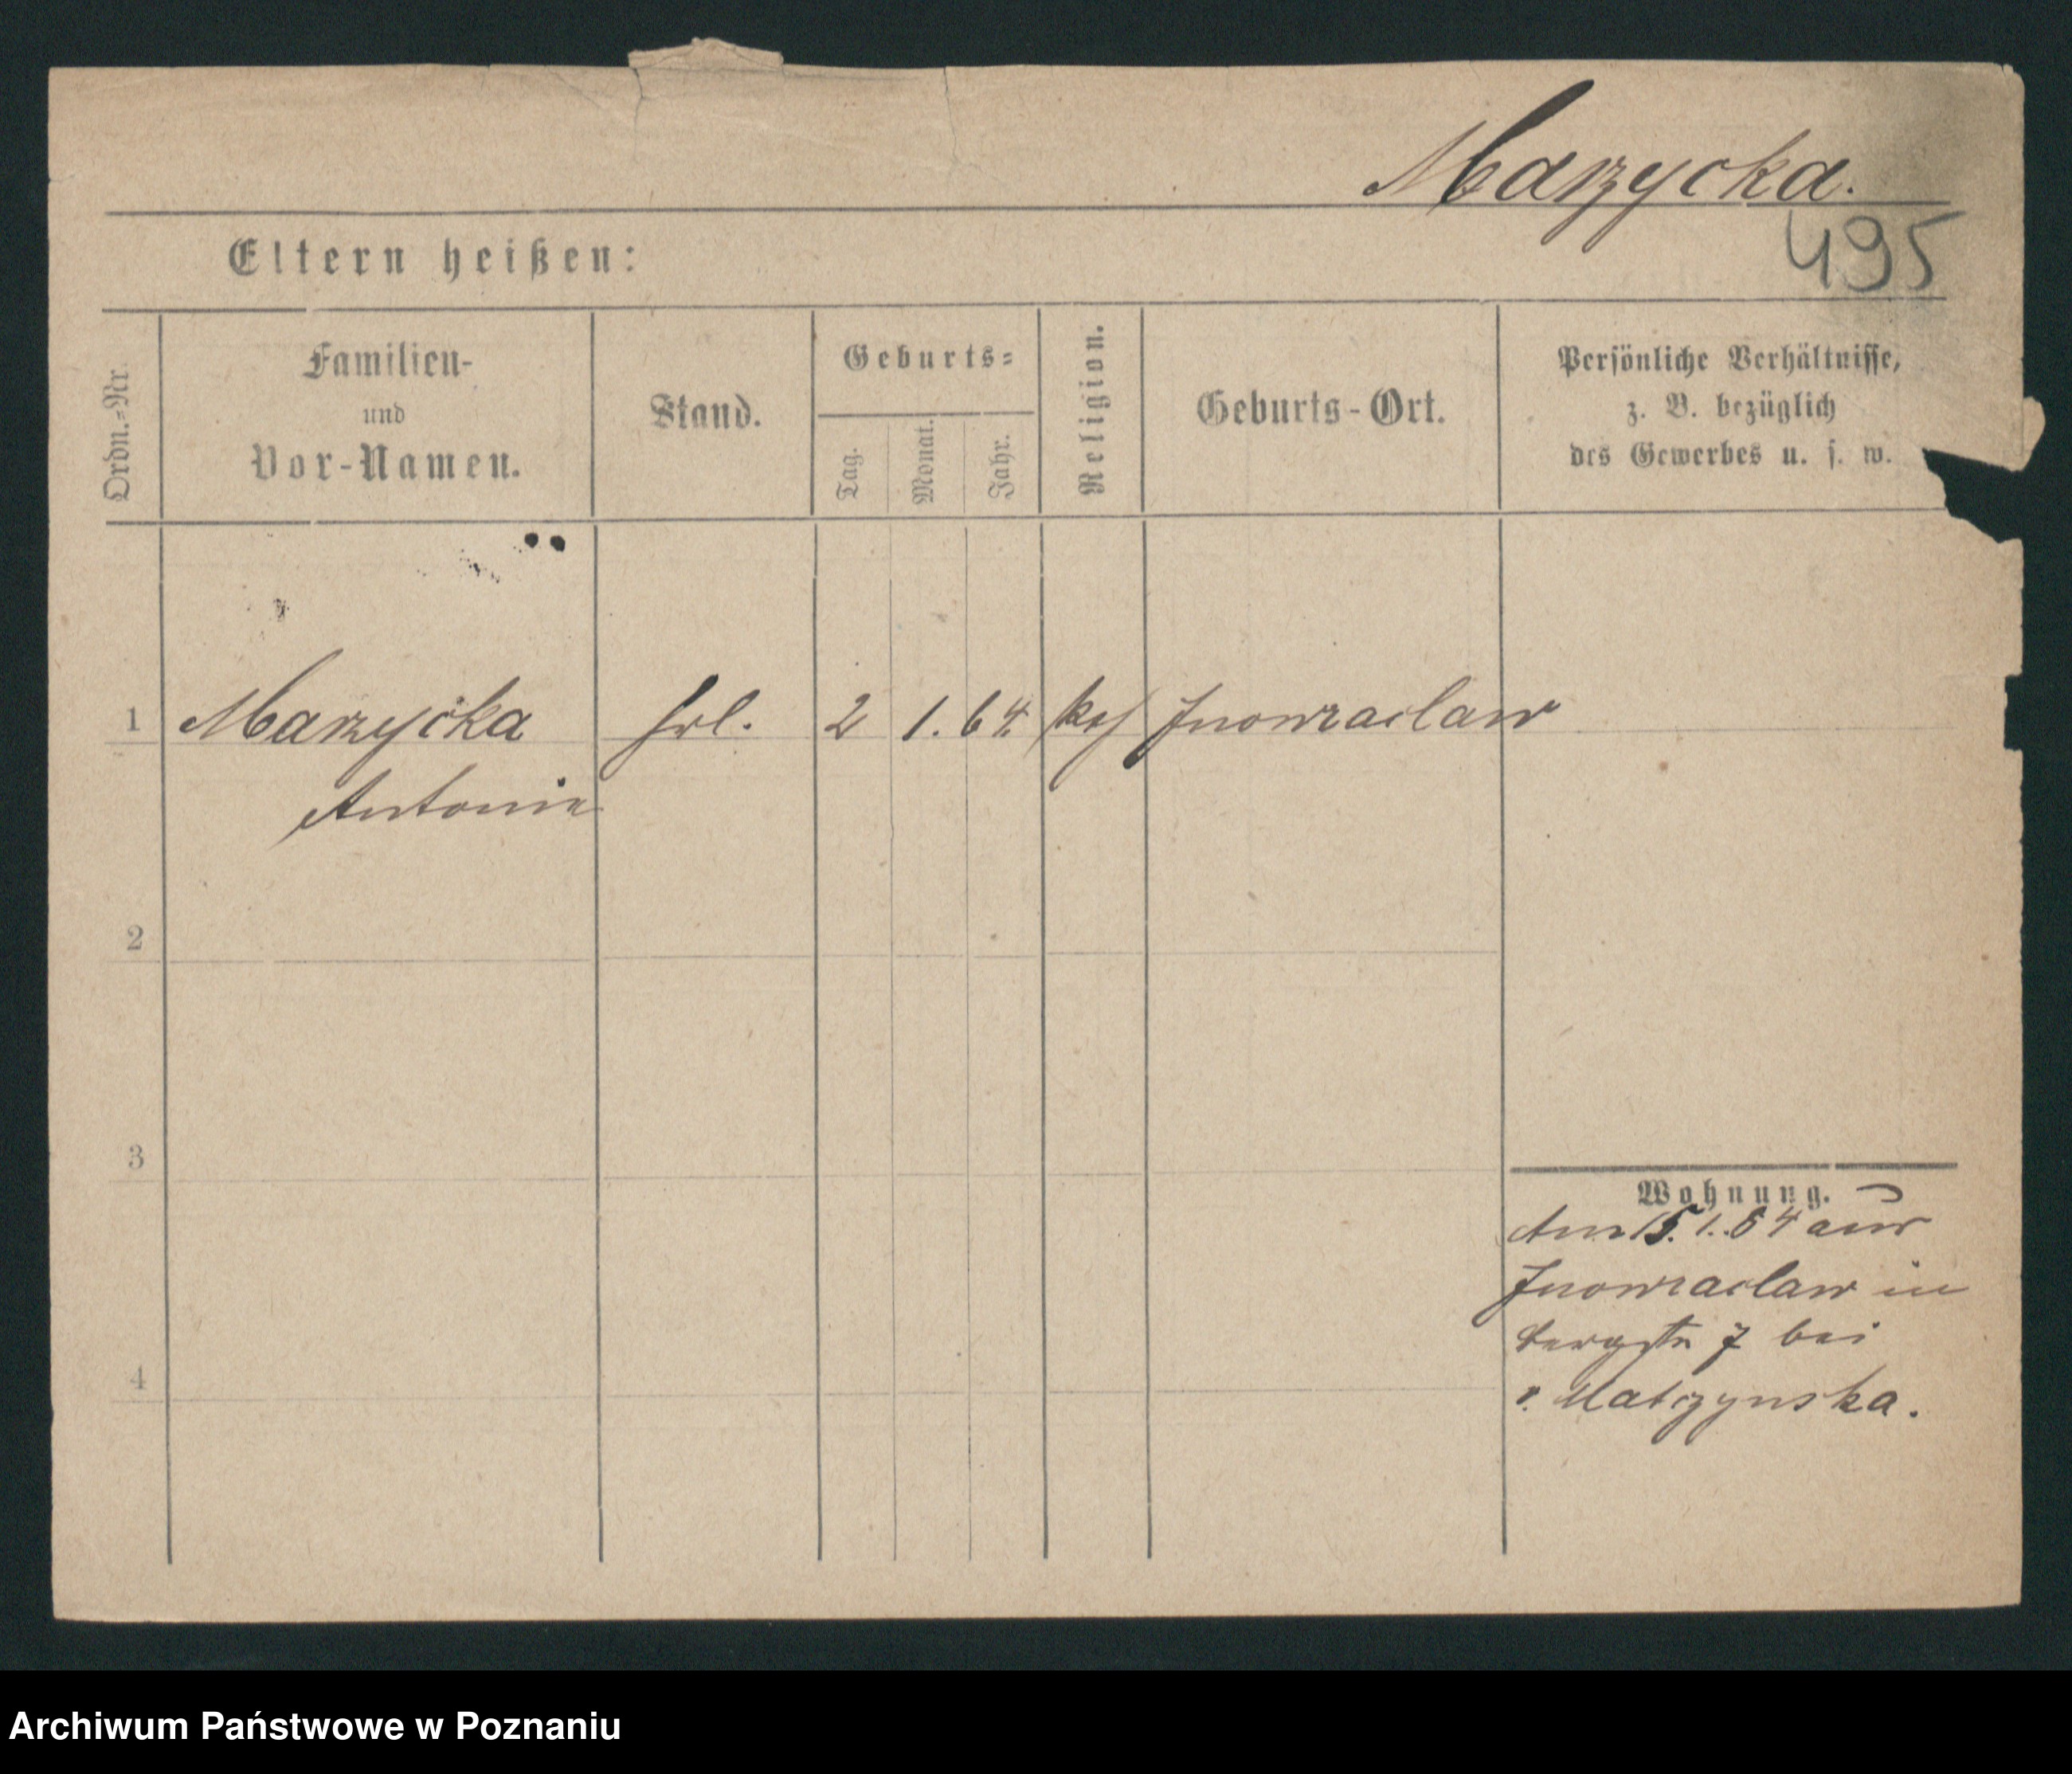 Marzycka.
495
Eltern heißen:
Ordn.=Nr.
Familien-
und
Vor-Namen.
Stand.
Geburts=
Tag.
Monat.
Jahr.
Religion.
Geburts-Ort.
Persönliche Verhältnisse,
z. B. bezüglich
des Gewerbes u. s. w.
1 Marzycka frl. 2 1. 64. kath Inowraclaw
Antonie
2
3
4
Wohnung.
Am 15. 1. 84 aus
Inowraclaw in
7 bei
v. Matczynska.
Archiwum Państwowe w Poznaniu